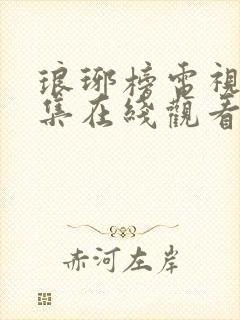 琅琊榜電視
集在綫觀看
赤河左岸